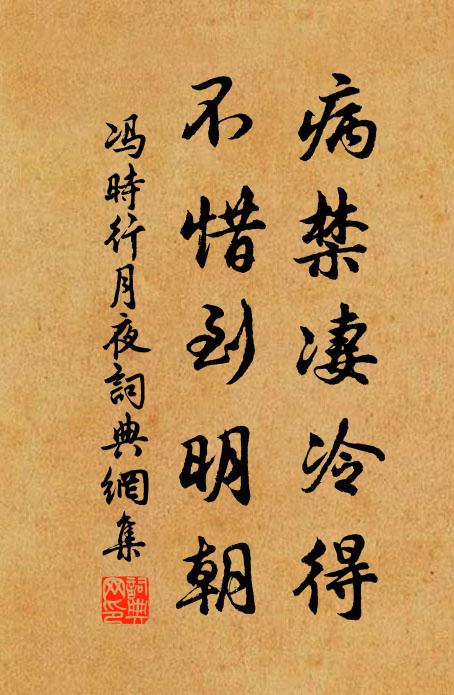 病禁凄冷得
不惜到明朝
冯時行月夜詞典網集
詞典网印